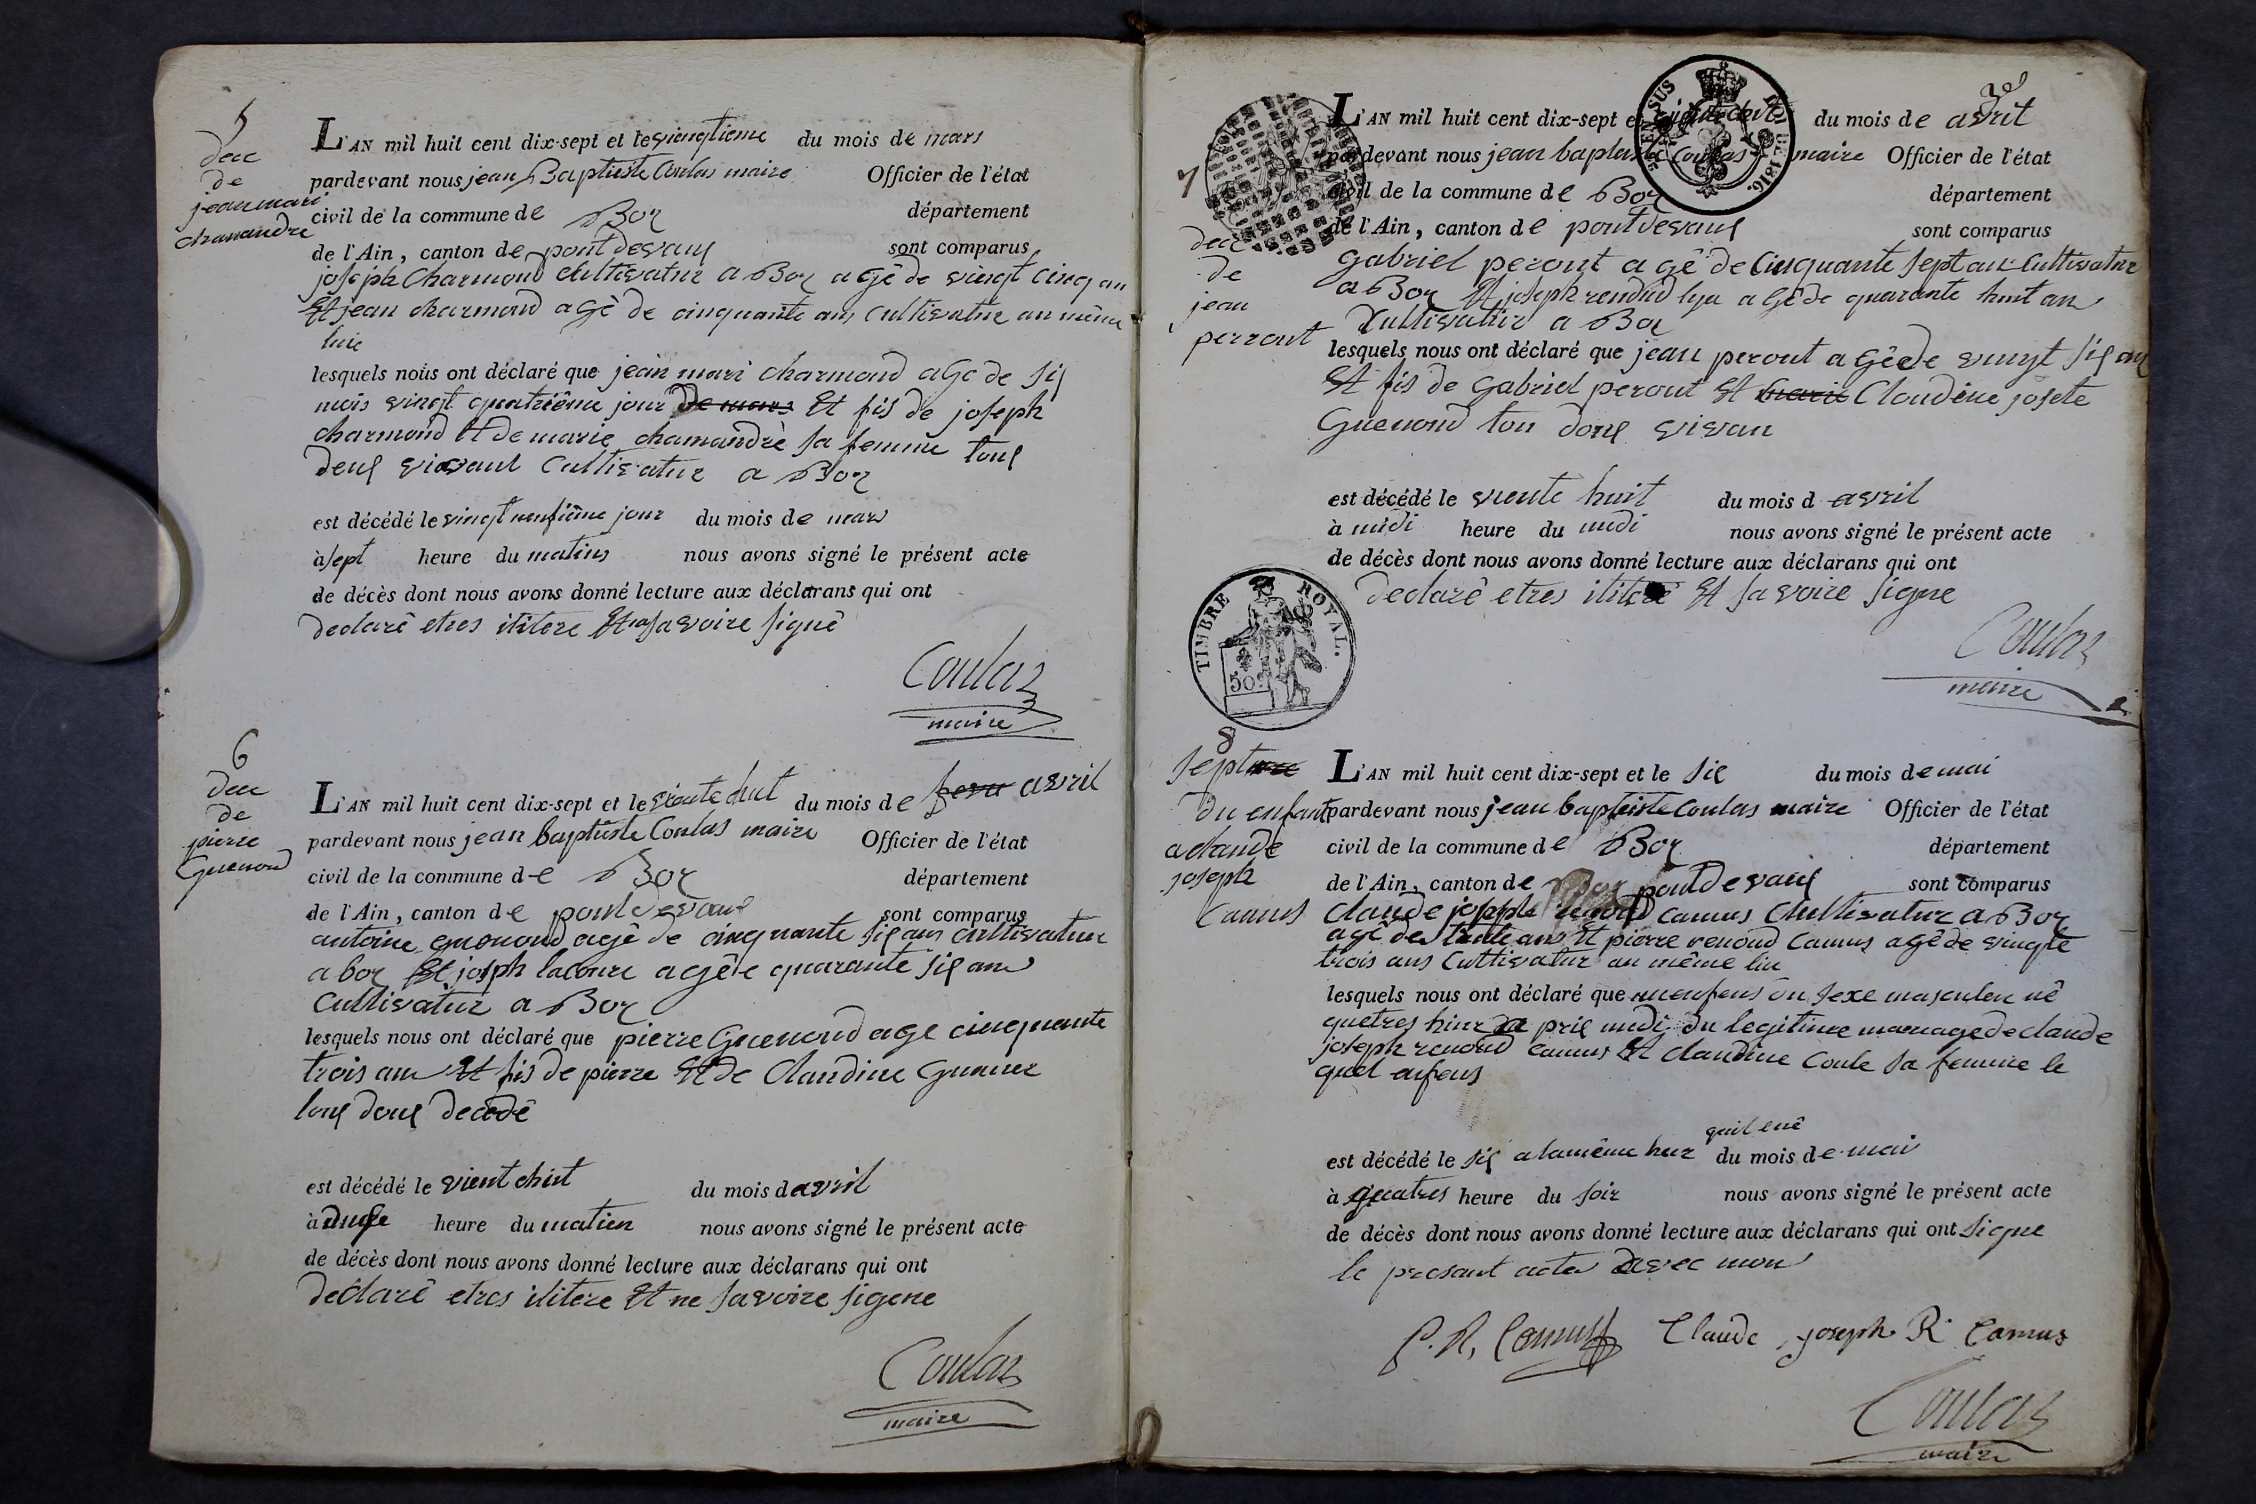 5
dec
de
jean mari
chamandre
L'AN mil huit cent dix-sept et le vingtieme du mois de mars
pardevant nous jean Baptiste Coulas maire Officier de l'état
civil de la commune de Boz département
de l'Ain, canton de pont devaux sont comparus
joseph Charmond cultivatur a Boz agê de vingt cinq an
Et jean charmond agê de cinquante ans cultivatur au même
lui
lesquels nous ont déclaré que jean mari charmond age de six
mois vingt quatriême jour de mars Et fis de joseph
charmond Et de marie chamandrè sa femme tous
deux vivant cultivatur a Boz
est décédé le vingt neufiême jour du mois de mars
à sept heure du matins nous avons signé le présent acte
de décès dont nous avons donné lecture aux déclarans qui ont
declarê etres ilitere Et na savoire signê
Coulas
maire
6
dec
de
pierre
Guenond
L'AN mil huit cent dix-sept et le viente chut du mois de fevr avril
pardevant nous jean baptiste Coulas maire Officier de l'état
civil de la commune de Boz département
de l'Ain, canton de pont devaux sont comparus
antoine guenond agê de cinquante six ans cultivatur
a boz Et joseph lacoure agê e quarante six ans
cultivatur a Boz
lesquels nous ont déclaré que pierre Guenond age cinquante
trois an Et fis de pierre Et de Claudine
tous deux decedê
est décédé le vient chiit du mois d avril
à heure du matien nous avons signé le présent acte
de décès dont nous avons donné lecture aux déclarans qui ont
declarê etres ilitere Et ne savoire signe
Coulas
maire
3e
7
dec
de
jean
perrout
L'AN mil huit cent dix-sept et du mois de avril
pardevant nous jean baptiste Coulas maire Officier de l'état
civil de la commune de Boz département
de l'Ain, canton de pont devaux sont comparus
gabriel perout agê de Cinquante sept an Cultivatur
a Boz Et joseph agê de quarante huit an
Cultivatur a Boz
lesquels nous ont déclaré que jean perout agê de vingt six an
Et fis de gabriel perout Et marie Claudine josete
Guenond tou doux vivan
est décédé le viente huit du mois d avril
à midi heure du midi nous avons signé le présent acte
de décès dont nous avons donné lecture aux déclarans qui ont
declarê etres ilitere Et savoire signe
Coulas
maire
TIMBRE ROYAL.
50
8
du enfant
a claude
joseph
Camus
L'AN mil huit cent dix-sept et le six du mois de mai
pardevant nous jean baptiste Coulas maire Officier de l'état
civil de la commune de Boz département
de l'Ain, canton de pont devaux sont comparus
claude joseph renond camus Cultivatur a Boz
agê de trente ans Et pierre renond Camus agê de vingte
trois ans Cultivatur au même liu
lesquels nous ont déclaré que un enfens du sexe masculen nê
quetres hiur prie midi du legitime mariage de claude
joseph renond camus Et claudine Coule sa femme le
quel enfens
quil enê
est décédé le six a la même hur du mois de mai
à quatres heure du soir nous avons signé le présent acte
de décès dont nous avons donné lecture aux déclarans qui ont signe
le presant acte avec mon
P. R. Camus Claude joseph R Camus
Coulas
maire